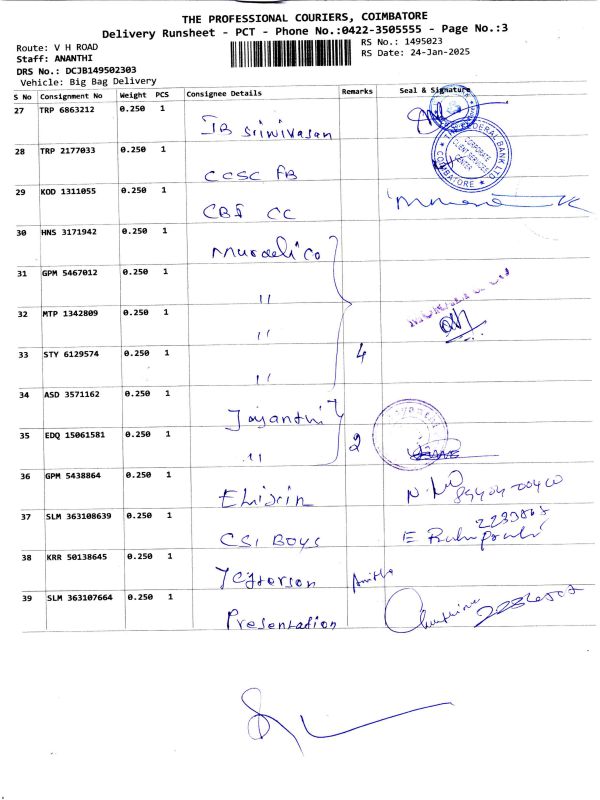 THE PROFESSIONAL COURIERS, COIMBATORE
Delivery Runsheet - PCT - Phone No.:0422-3505555 - Page No.:3
Route: V H ROAD
RS No.: 1495023
Staff: ANANTHI
RS Date: 24-Jan-2025
DRS No.: DCJB149502303
Vehicle: Big Bag Delivery
S No Consignment No Weight PCS Consignee Details Remarks Seal & Signature
27 TRP 6863212 0.250 1
IB Srinivasan
28 TRP 2177033 0.250 1
CCSC FB
THE FEDERAL BANK LTD
CORPORATE CLIENT SERVICES
COIMBATORE
29 KOD 1311055 0.250 1
CBS CC
30 HNS 3171942 0.250 1
Muraeli Co
31 GPM 5467012 0.250 1
"
32 MTP 1342809 0.250 1
"
33 STY 6129574 0.250 1
" 4
34 ASD 3571162 0.250 1
Jayanthi
35 EDQ 15061581 0.250 1
" 2
36 GPM 5438864 0.250 1
37 SLM 363108639 0.250 1
CSI BOYS
38 KRR 50138645 0.250 1
Jefferson
39 SLM 363107664 0.250 1
Presentation